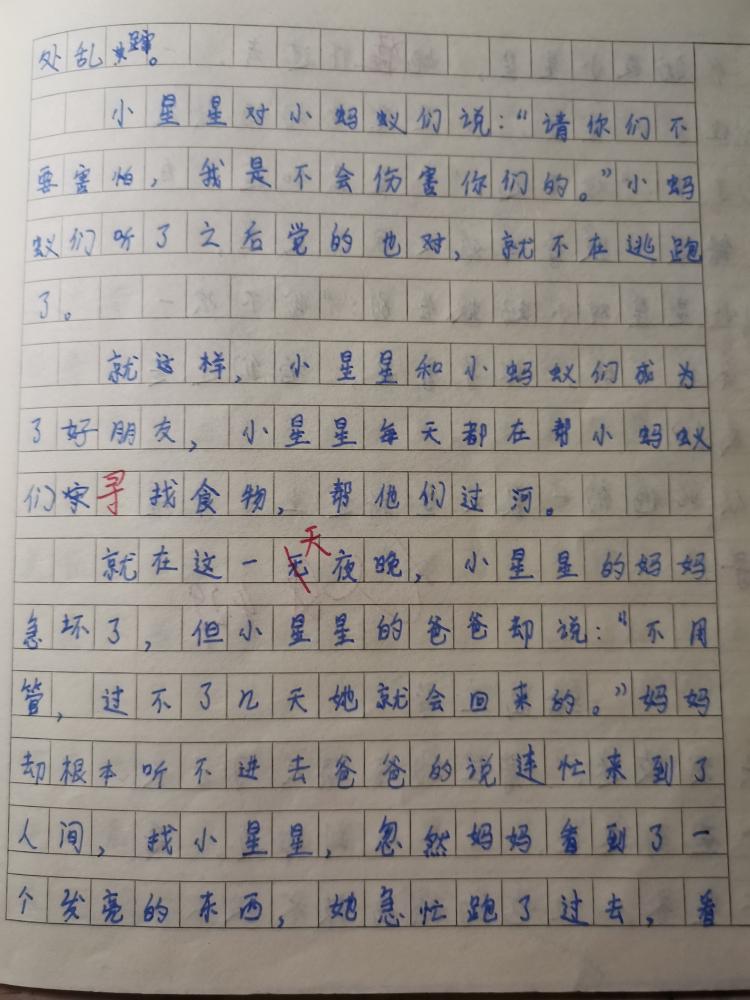 处乱蹿。
小星星对小蚂蚁们说：“请你们不
要害怕，我是不会伤害你们的。”小蚂
蚁们听了之后觉的也对，就不在逃跑
了。
就这样，小星星和小蚂蚁们成为
了好朋友，小星星每天都在帮小蚂蚁
们寻找食物，帮他们过河。
就在这一天夜晚，小星星的妈妈
急坏了，但小星星的爸爸却说：“不用
管，过不了几天她就会回来的。”妈妈
却根本听不进去爸爸的说连忙来到了
人间，找小星星，忽然妈妈看到了一
个发亮的东西，她急忙跑了过去，看